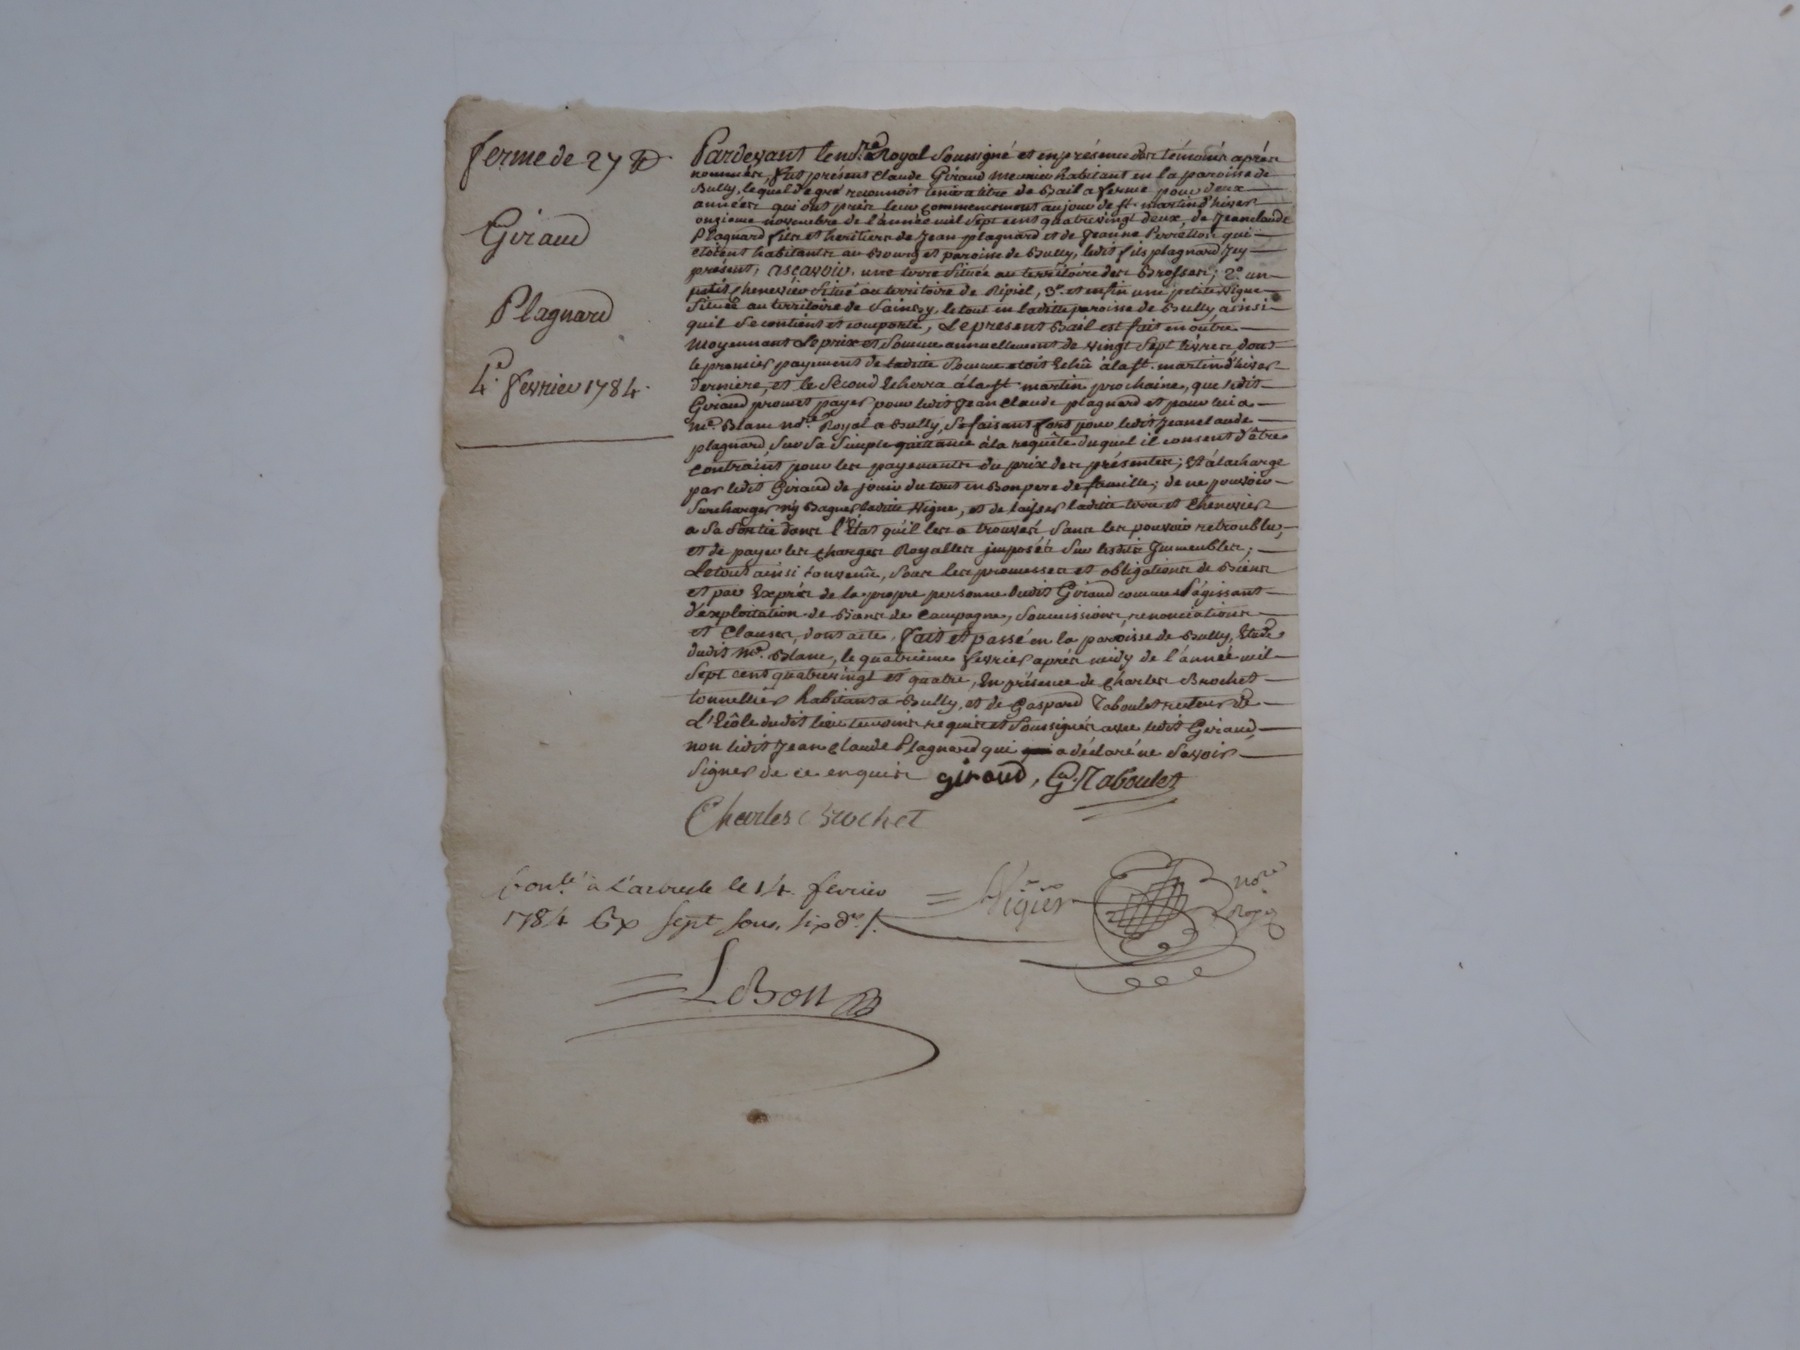 ferme de 27 ₶
Giraud
Plagnard
4e. février 1784.
Pardevant le no.re Royal Soussigné et en présence des témoins après
nommés, fut présent Claude Giraud meunier habitant en la paroisse de
Bully, lequel de gré reconnoit tenir a titre de Bail a ferme pour deux
années qui ont pris leur commencement au jour de st. martin d'hiver
onzieme novembre de l'année mil Sept cent quatrevingt deux, de Jeanclaude
Plagnard fils et heritier de Jean plagnard et de Jeanne Perrellon qui
etoient habitants au Bourg et paroisse de Bully, ledit fils plagnard Icy
présent, ascavoir, une terre Située au territoire des Brosses; 2°. un
petit Chenevier Situé au territoire de Ripiel, 3°. et enfin une petite vigne
Située au territoire de Sainby, le tout en ladite paroisse de Bully, ainsi
quil Se contient et comporte, Le présent Bail est fait en outre
Moyennant Le prix et Somme annuellement de vingt Sept livres dont
le premier payement de ladite Somme etoit Echû à la st. martin d'hiver
derniere, et le Second Echerra à la st. martin prochaine, que ledit
Giraud promet payer pour ledit Jean Claude plagnard et pour lui a
Me. Blanc no.re Royal a Bully, Se faisant fort pour ledit Jeanclaude
plagnard, Sur Sa Simple quittance à la requête duquel il consent d'être
Contraint pour les payements du prix des présentes; Et à la charge
par ledit Giraud de jouir du tout en Bon pere de famille; de ne pouvoir
Surcharger ny Baguer ladite Vigne, et de laisser ladite terre et Chenevier
a Sa Sortie dans l'État qu'il les a trouvés Sans les pouvoir retroubler,
et de payer les charges Royalles imposés Sur lesdits Immeubles;
Le tout ainsi Convenû, Sous les promesses et obligations de Biens
et par Exprès de la propre personne dudit Giraud comme S'agissant
d'exploitation de Biens de Campagne, Soumissions, renonciations
et Clauses, dont acte, fait et passé en la paroisse de Bully, Etude
dudit Me. Blanc, le quatrieme février après midy de l'année mil
Sept cent quatrevingt et quatre, En présence de Charles Brochet
tonnellier habitant a Bully, et de Gaspard Taboulet recteur de
L'Ecôle dudit lieu temoins requis et Soussignés avec ledit Giraud,
non ledit Jean Claude Plagnard qui a déclaré ne Savoir
Signer de ce enquis giraud, G. Taboulet
Charles Brochet
Conlé. à L'arbresle le 14. février
1784 Sept Sous, Six drs.
Vigier nore. Royal
LeBon